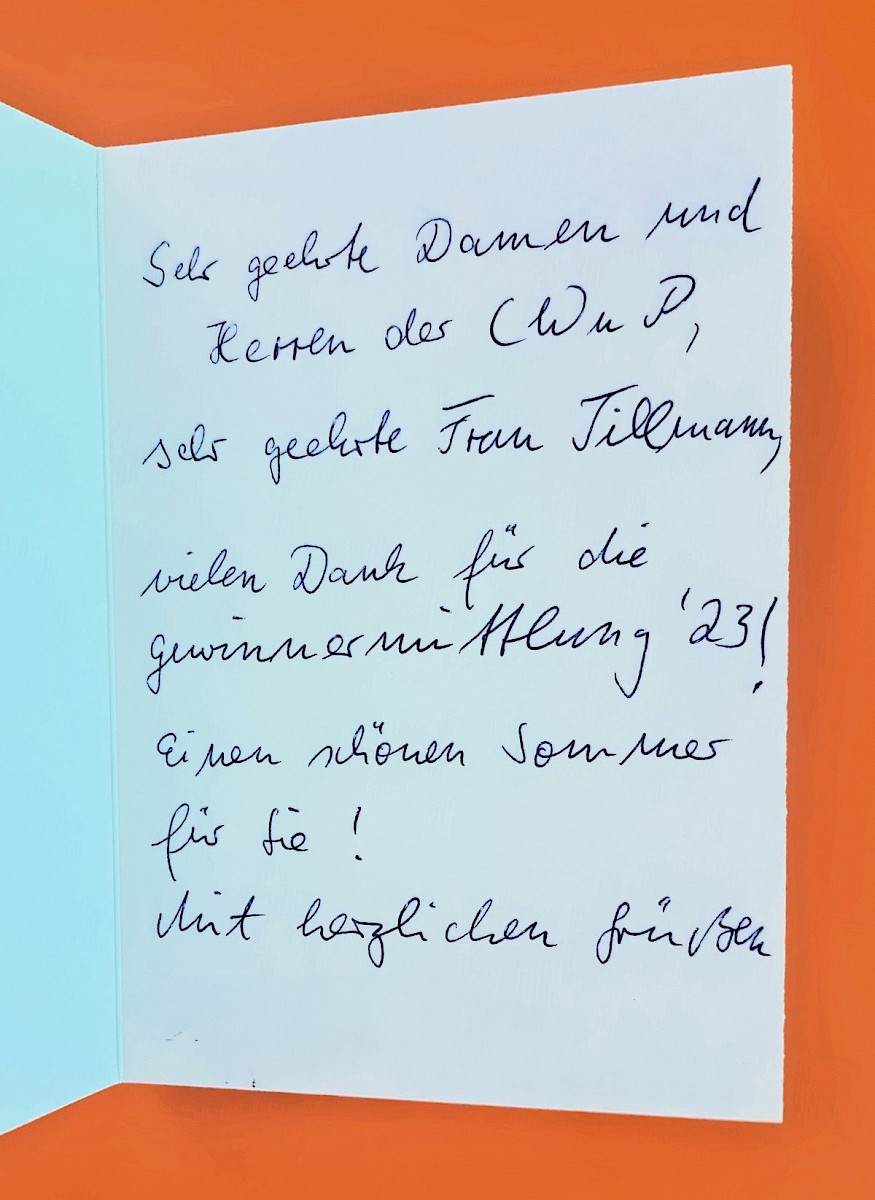 Sehr geehrte Damen und
Herren der CWuP,
sehr geehrte Frau Tillmann,
vielen Dank für die
Gewinnermittlung '23!
Einen schönen Sommer
für Sie!
Mit herzlichen Grüßen